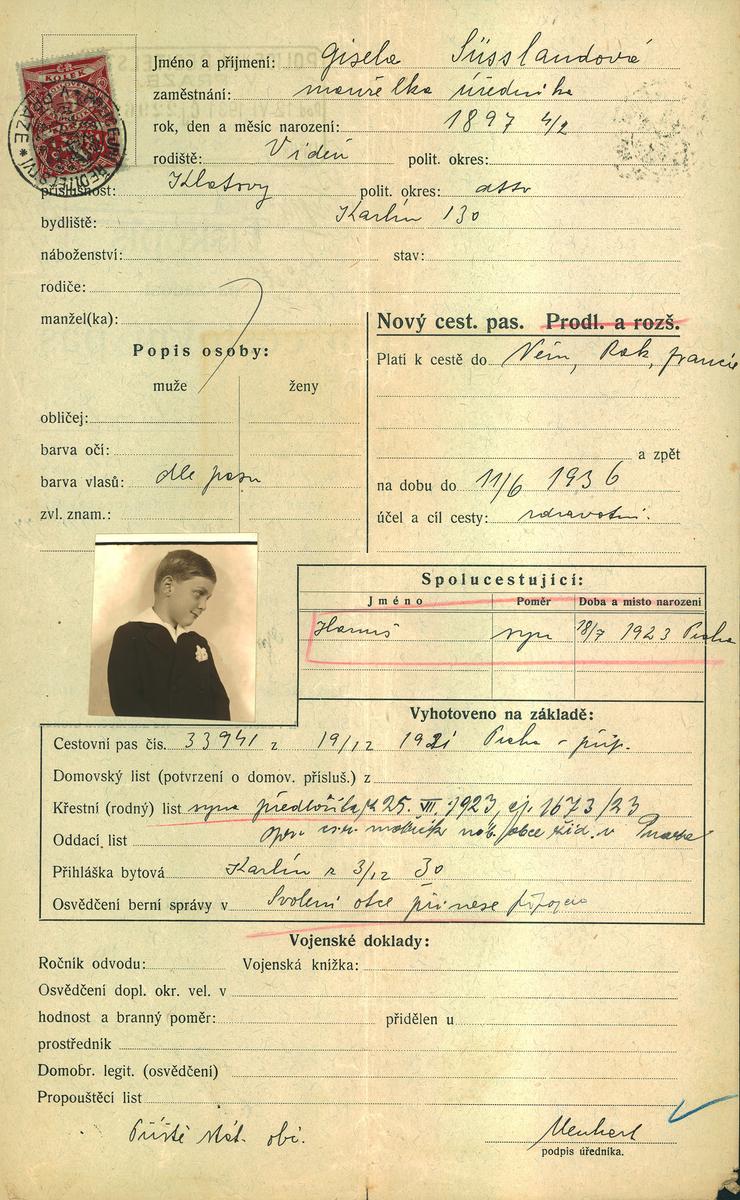 Jméno a příjmení: Gisela Süsslandová
zaměstnání: manželka úředníka
rok, den a měsíc narození: 1897 4/2
rodiště: Vídeň polit. okres:
příslušnost: Klatovy polit. okres: dtto
bydliště: Karlín 130
náboženství: stav:
rodiče:
manžel(ka):
Nový cest. pas. Prodl. a rozš.
Popis osoby:
Platí k cestě do Něm, Rak, Francie
muže ženy
obličej:
barva očí:
a zpět
barva vlasů: dle pasu
na dobu do 11/6 1936
zvl. znam.:
účel a cíl cesty: zdravotní.
Spolucestující:
Jméno Poměr Doba a misto narozeni
Hanuš syn 18/7 1923 Praha
Vyhotoveno na základě:
Cestovní pas čís. 33941 z 19/12 1931 Praha - příp.
Domovský list (potvrzení o domov. přísluš.) z
Křestní (rodný) list syna předložila z 25. VII. 1923, čj. 1673/23
Oddací list náb. obce žid. v Praze
Přihláška bytová Karlín z 3/12 30
Osvědčení berní správy v Svolení otce přinese
Vojenské doklady:
Ročník odvodu: Vojenská knížka:
Osvědčení dopl. okr. vel. v
hodnost a branný poměr: přidělen u
prostředník
Domobr. legit. (osvědčení)
Propouštěcí list
Příště stát. obč.
podpis úředníka.